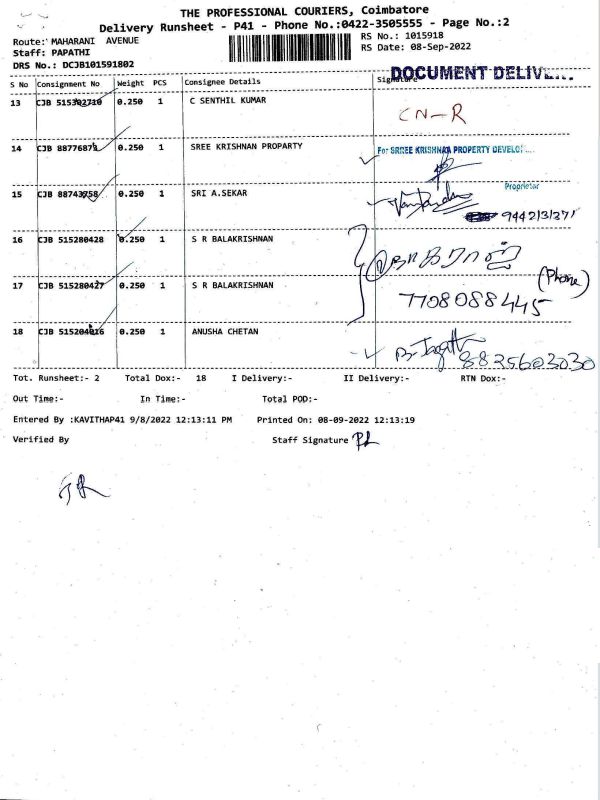 THE PROFESSIONAL COURIERS, Coimbatore
Delivery Runsheet - P41 - Phone No.:0422-3505555 - Page No.:2
Route: MAHARANI AVENUE
RS No.: 1015918
Staff: PAPATHI
RS Date: 08-Sep-2022
DRS No.: DCJB101591802
DOCUMENT DELIV...
S No Consignment No Weight PCS Consignee Details Signature
13 CJB 515302710 0.250 1 C SENTHIL KUMAR
CN-R
14 CJB 0.250 1 SREE KRISHNAN PROPARTY
For SRREE KRISHNAN PROPERTY DEVELO
Proprietor
15 CJB 88743758 0.250 1 SRI A.SEKAR
9442131371
16 CJB 515280428 0.250 1 S R BALAKRISHNAN
(Phone)
17 CJB 515280427 0.250 1 S R BALAKRISHNAN
7708088445
18 CJB 515204016 0.250 1 ANUSHA CHETAN
8825603030
Tot. Runsheet:- 2 Total Dox:- 18 I Delivery:- II Delivery:- RTN Dox:-
Out Time:- In Time:- Total POD:-
Entered By :KAVITHAP41 9/8/2022 12:13:11 PM Printed On: 08-09-2022 12:13:19
Verified By Staff Signature